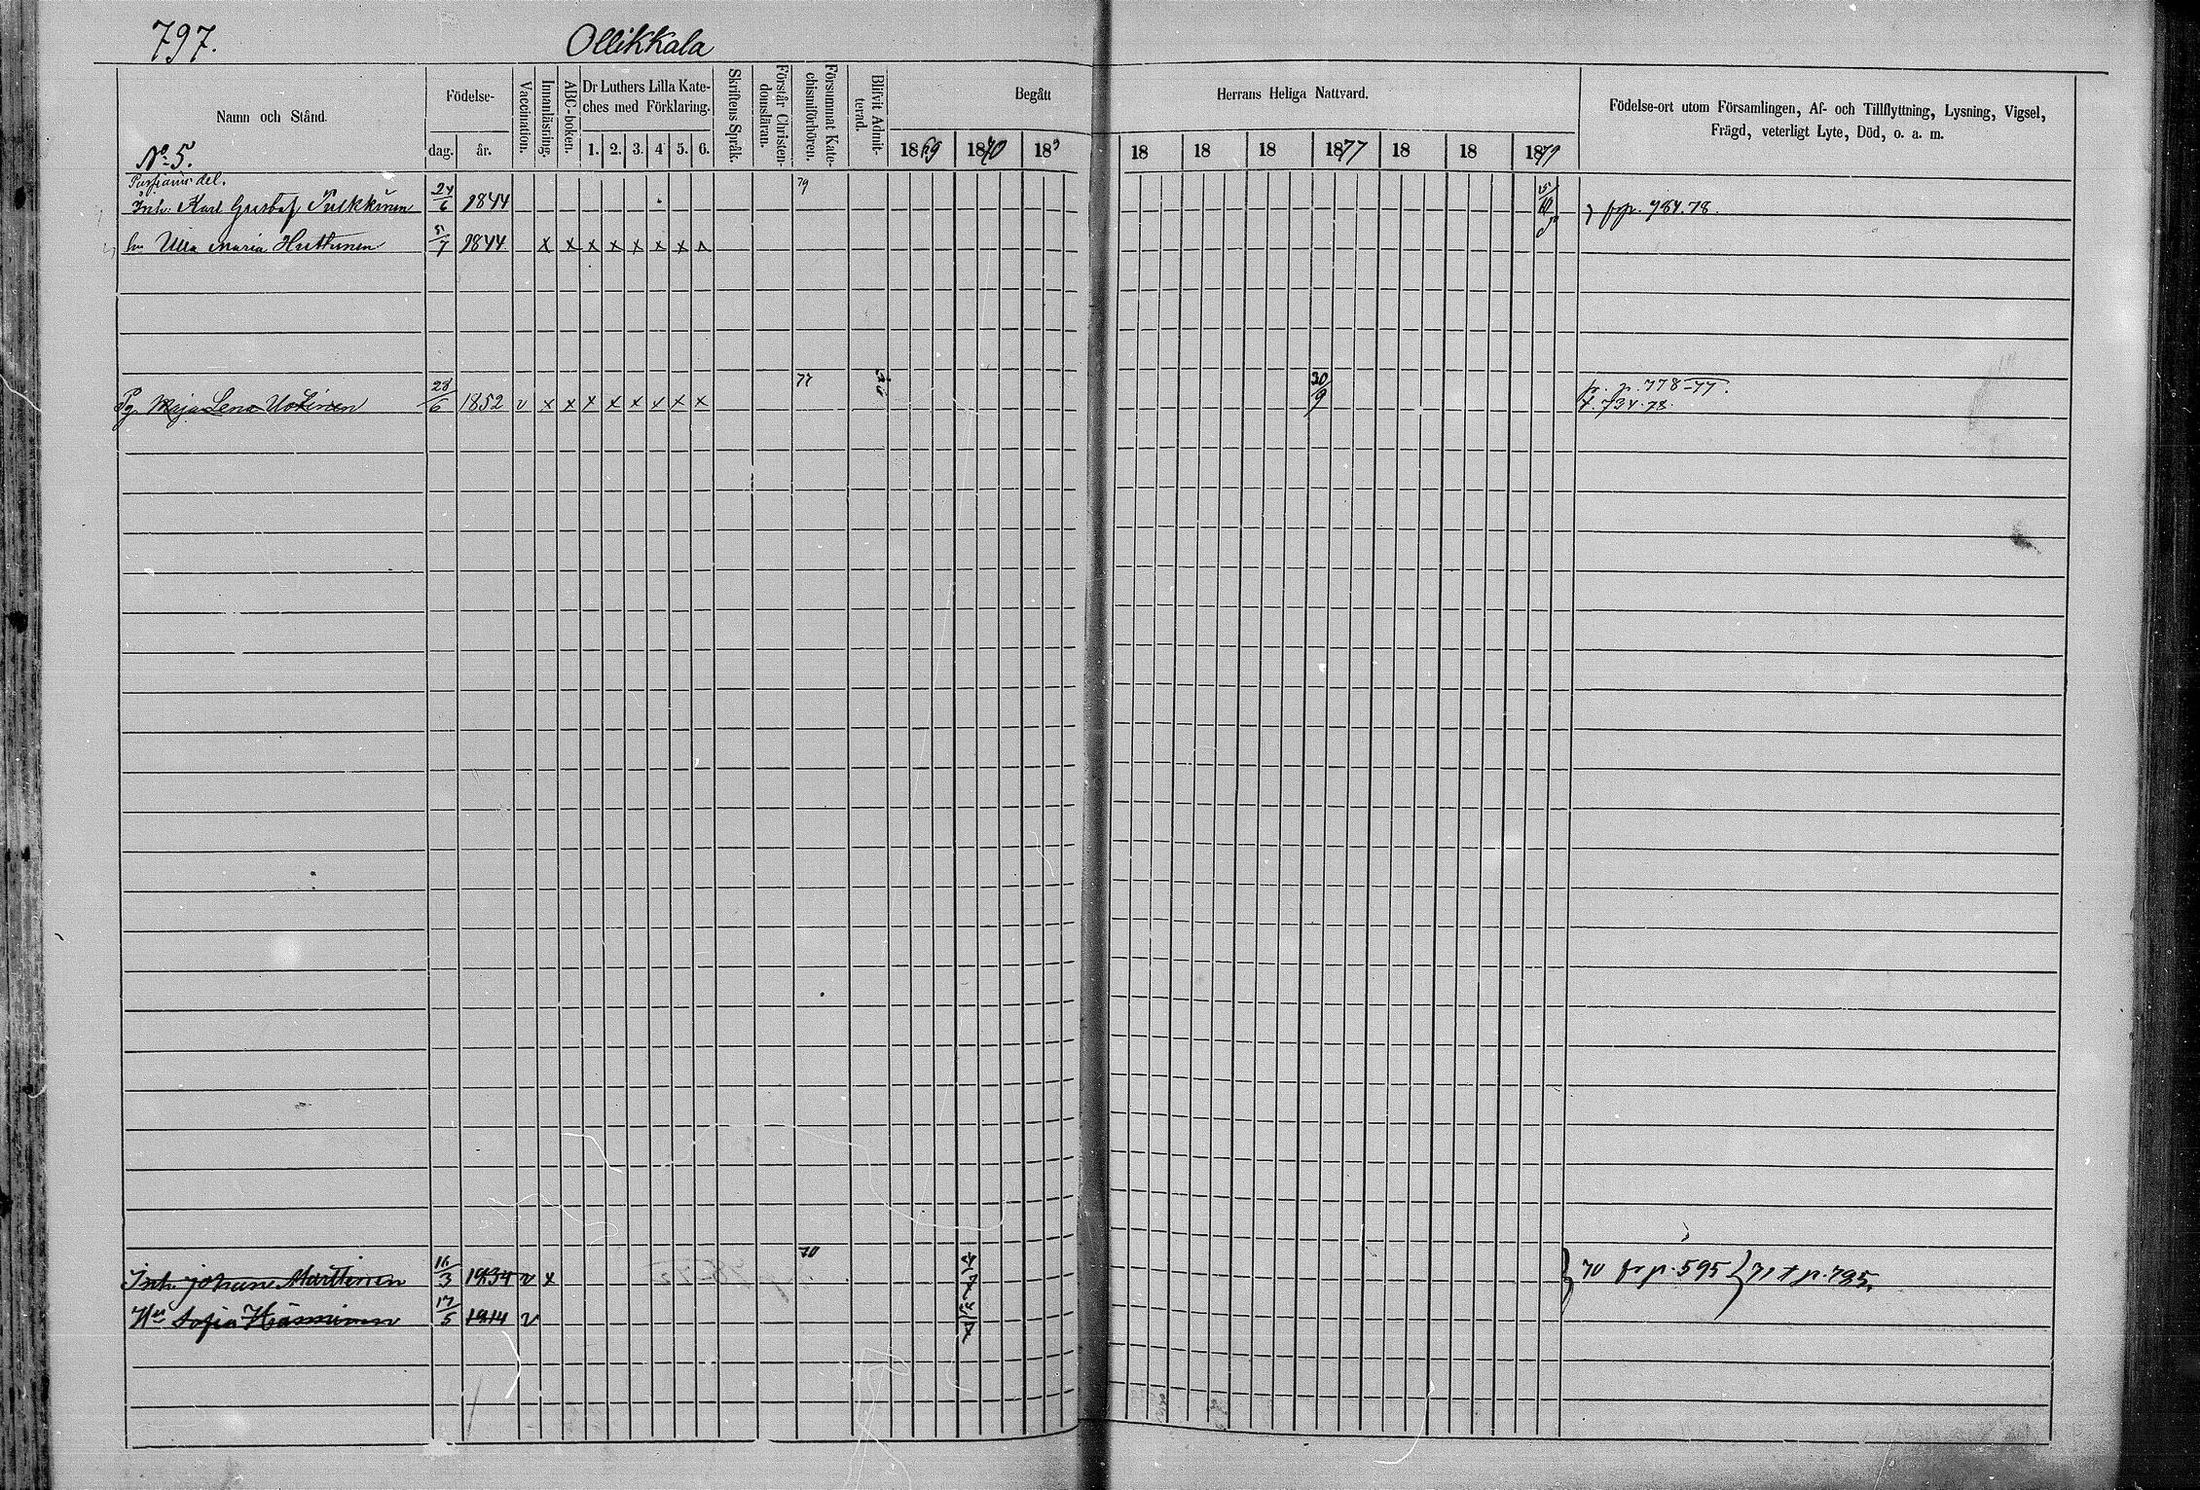 797. Ollikkala
Namn och Stånd.
Födelse-
dag. år.
Vaccination.
Innanläsning.
ABC-boken.
Dr Luthers Lilla Kate-
ches med Förklaring.
1. 2. 3. 4 5. 6.
Skriftens Språk.
Förstår Christen-
domsläran.
Försummat Kate-
chismiförhören.
Blifvit Admit-
terad.
Begått Herrans Heliga Nattvard.
1869 1870 18 18 18 18 1877 18 18 1879
Födelse-ort utom Församlingen, Af- och Tillflyttning, Lysning, Vigsel,
Frägd, veterligt Lyte, Död, o. a. m.
No 5.
del.
Inh. Karl Gustaf Pulkkinen 24/6 1844 79 frp. 784.78.
hu Ulla Maria Huttunen 5/7 1844 x x x x x x x x
Pg. Maja Lena 28/6 1852 v x x x x x x x x 77 30/9 fr. p. 778-77.
t. 734.78.
Inh. Johan Marttinen 16/3 1834 v x 70 70 fr p. 595 71 t p. 795.
Hu Sofia 17/5 1814 v